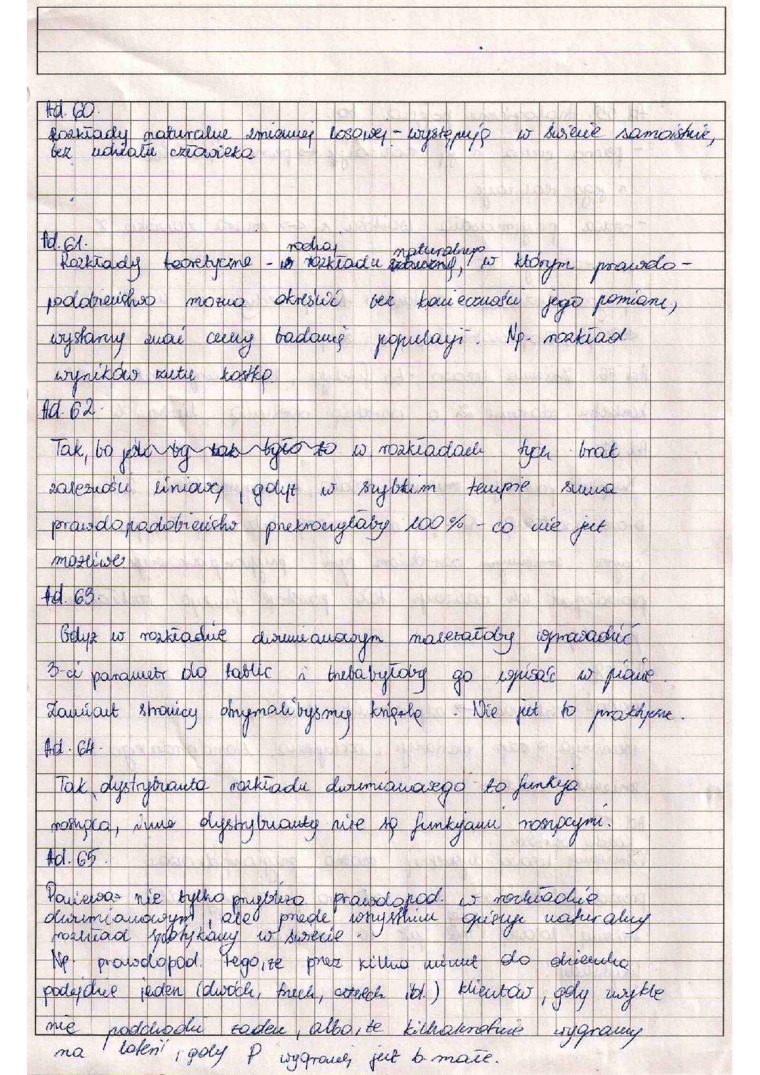 Ad. 60.
Rozkłady naturalne zmiennej losowej – występują w świecie samoistnie,
bez udziału człowieka
Ad. 61.
rodzaj naturalnego
Rozkłady teoretyczne – rozkładu, w którym prawdo –
podobieństwo można określić bez konieczności jego pomiaru,
wystarczy znać cechy badanej populacji. Np. rozkład
wyników rzutu kostką.
Ad. 62.
Tak, bo jeśli by tak było to w rozkładach tych brak
zależności liniowej, gdyż w szybkim tempie suma
prawdopodobieństw przekroczyłaby 100% – co nie jest
możliwe
Ad. 63.
Gdyż w rozkładzie dwumianowym należałoby wprowadzić
3-ci parametr do tablic i trzebabyłoby go wpisać w pionie.
Zamiast stronicy otrzymalibyśmy książkę. Nie jest to praktyczne.
Ad. 64.
Tak, dystrybuanta rozkładu dwumianowego to funkcja
rosnąca, inne dystrybuanty nie są funkcjami rosnącymi.
Ad. 65.
Ponieważ nie tylko przybliża prawdopod. w rozkładzie
dwumianowym, ale przede wszystkim opisuje naturalny
rozkład spotykany w świecie.
Np. prawdopod. tego, że przez kilka minut do okienka
podejdzie jeden (dwóch, trzech, czterech itd.) klientów, gdy zwykle
nie podchodzi żaden, albo, że kilkakrotnie wygramy
na loterii, gdy P wygranej jest b. małe.